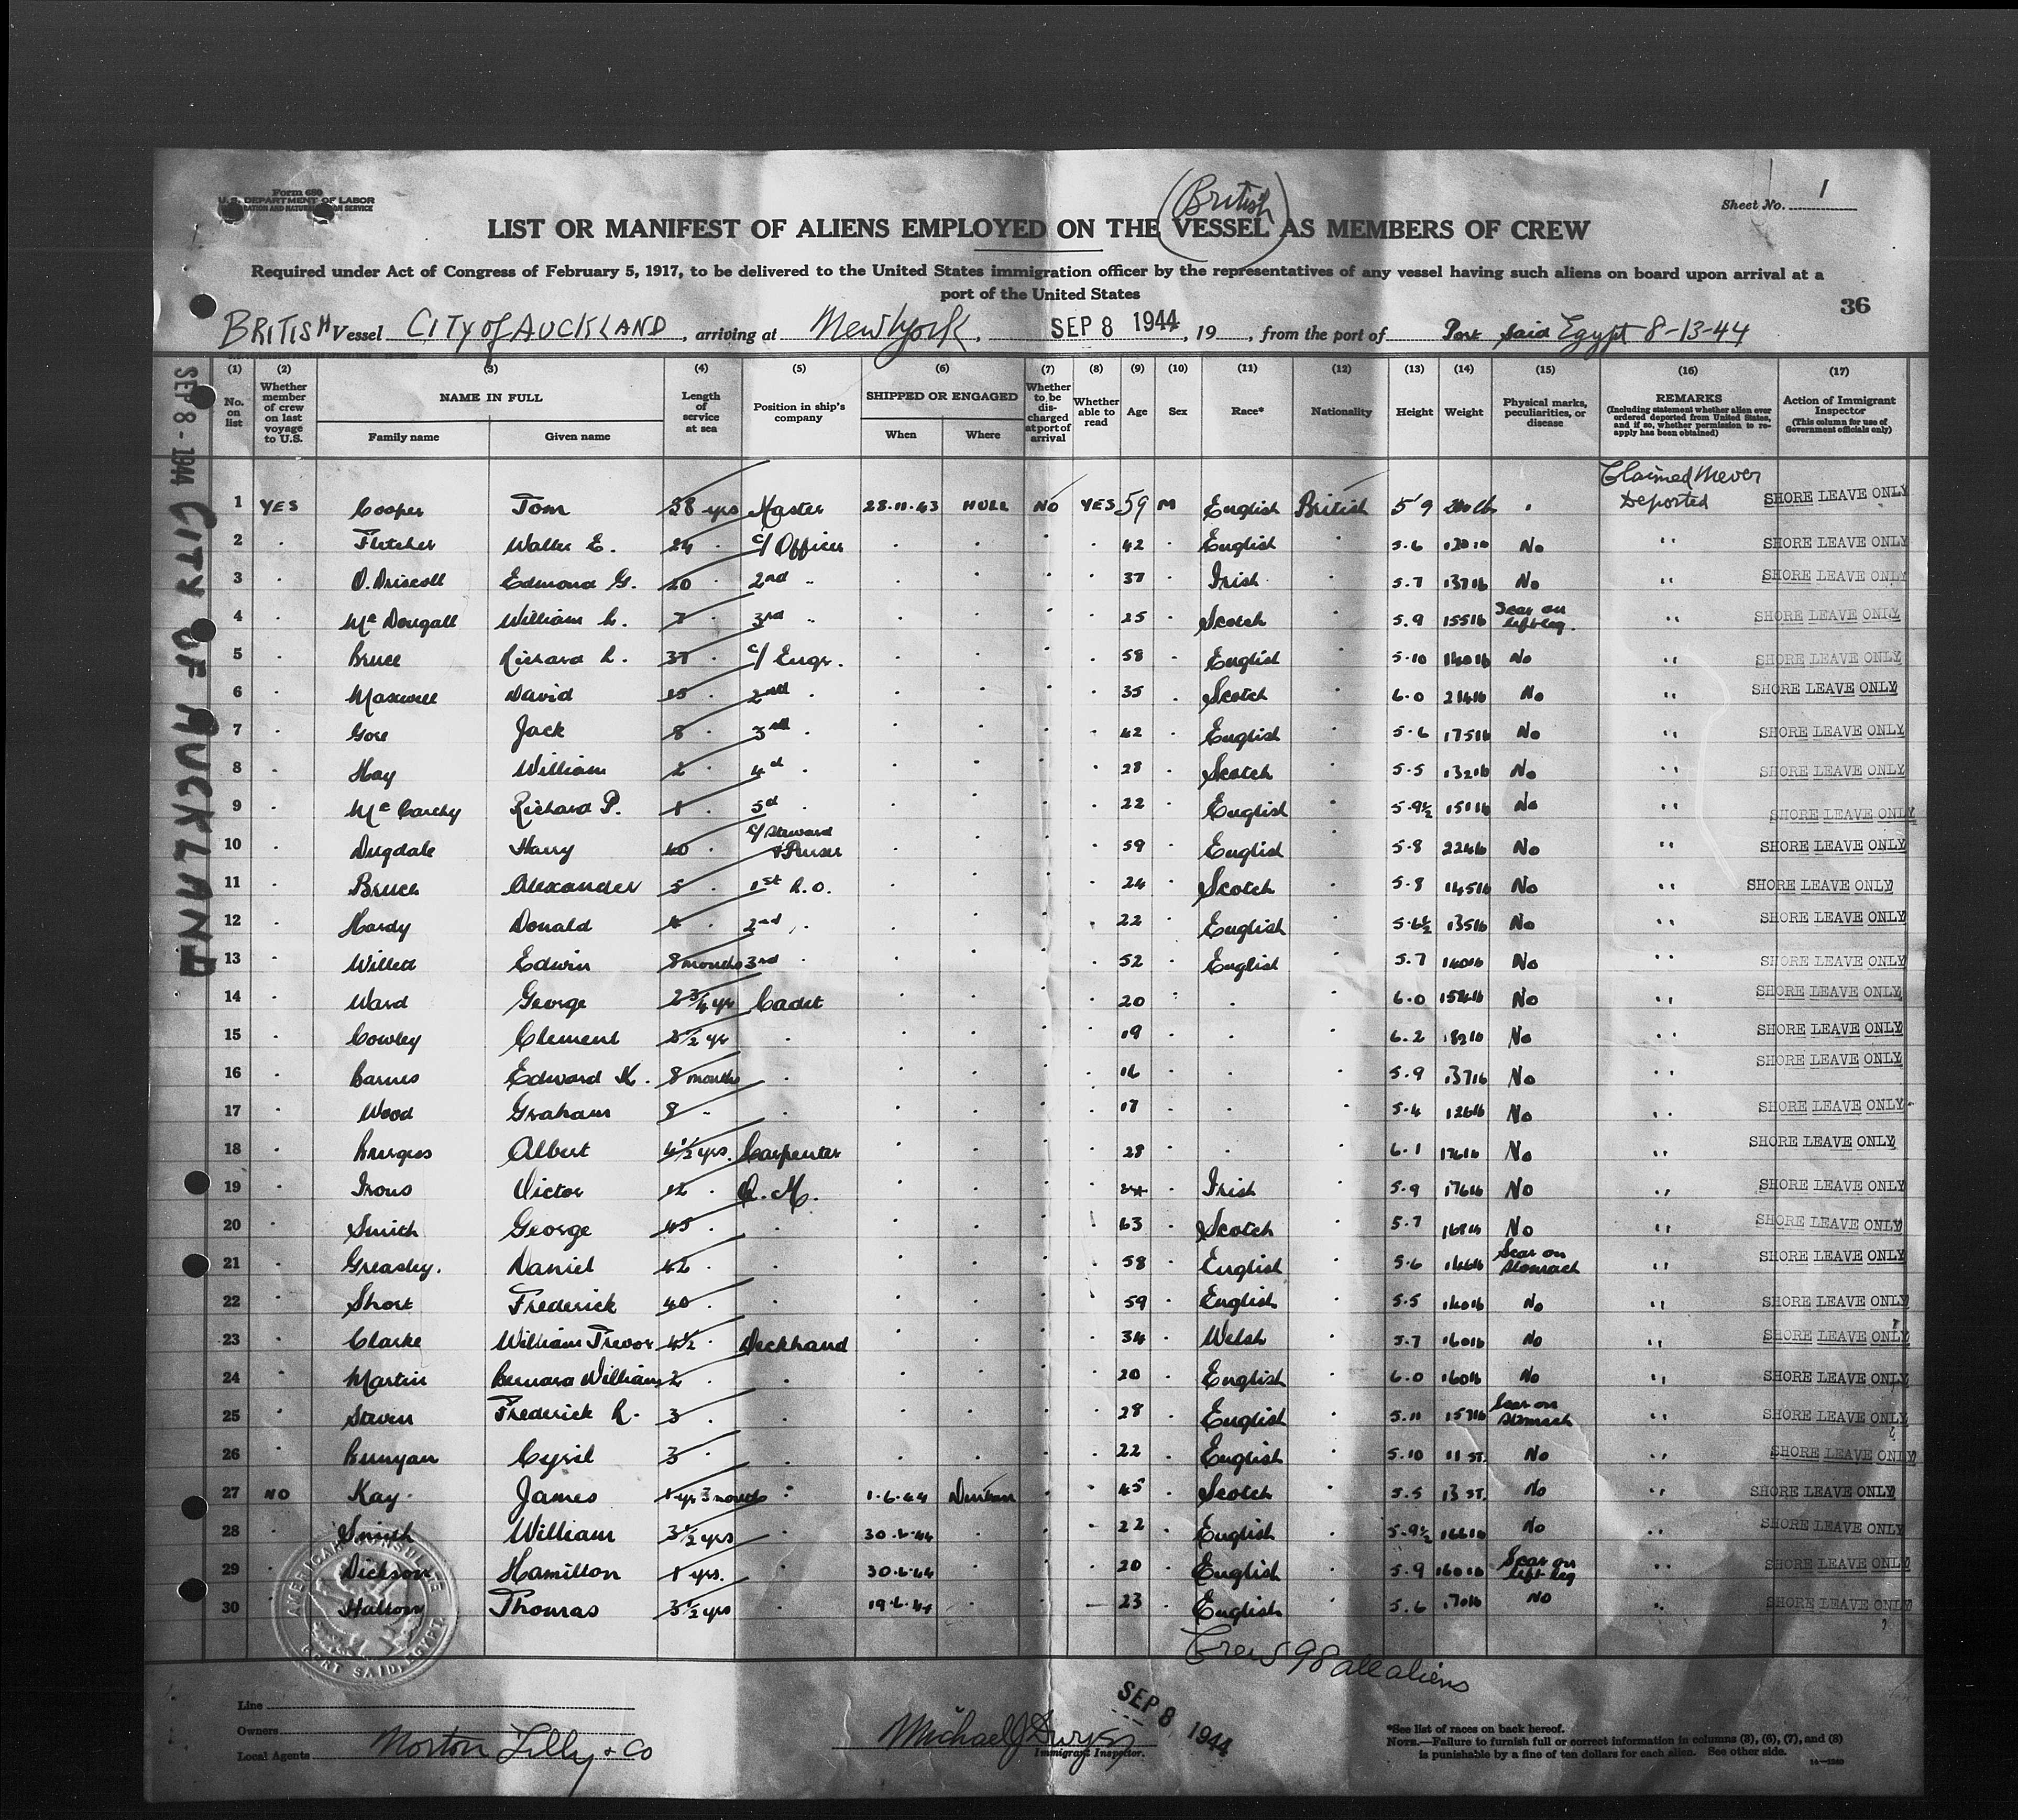 Form 680
U.S. DEPARTMENT OF LABOR
Sheet No. 1
(British)
LIST OR MANIFEST OF ALIENS EMPLOYED ON THE VESSEL AS MEMBERS OF CREW
Required under Act of Congress of February 5, 1917, to be delivered to the United States immigration officer by the representatives of any vessel having such aliens on board upon arrival at a
port of the United States
36
BRITISH Vessel CITY of AUCKLAND, arriving at New York, SEP 8 1944, 19, from the port of Port Said Egypt 8-13-44
SEP 8 - 1944 CITY OF AUCKLAND
(1) (2) (3) (4) (5) (6) (7) (8) (9) (10) (11) (12) (13) (14) (15) (16) (17)
No. on list
Whether member of crew on last voyage to U.S.
NAME IN FULL
Family name
Given name
Length of service at sea
Position in ship's company
SHIPPED OR ENGAGED
When
Where
Whether to be discharged at port of arrival
Whether able to read
Age
Sex
Race*
Nationality
Height
Weight
Physical marks, peculiarities, or disease
REMARKS
(Including statement whether alien ever ordered deported from United States, and if so, whether permission to reapply has been obtained)
Action of Immigrant Inspector
(This column for use of Government officials only)
Claimed Never
Deported
1 YES Cooper Tom 38 yrs Master 28.11.43 HULL NO YES 59 M English British 5 9 SHORE LEAVE ONLY
2 Fletcher Walter E. 24 c/ Officer 42 English 5.6 No " SHORE LEAVE ONLY
3 O.Driscoll Edmond G. 20 2nd " 37 Irish 5.7 137 lb No " SHORE LEAVE ONLY
4 Mc Dougall William C. 7 3rd " 25 Scotch 5.9 155 lb Scar on left leg. " SHORE LEAVE ONLY
5 Bruce Richard R. 37 c/ Engr. 58 English 5.10 140 lb No " SHORE LEAVE ONLY
6 Maxwell David 15 2nd 35 Scotch 6.0 214 lb No " SHORE LEAVE ONLY
7 Gore Jack 8 3rd 42 English 5.6 175 lb No " SHORE LEAVE ONLY
8 Hay William 2 4th 28 Scotch 5.5 132 lb No " SHORE LEAVE ONLY
9 Mc Carthy Richard P. 1 5th 22 English 5.9½ 151 lb No " SHORE LEAVE ONLY
10 Dugdale Harry 40 c/ Steward + Purser 59 English 5.8 224 lb No " SHORE LEAVE ONLY
11 Bruce Alexander 5 1st R.O. 24 Scotch 5.8 145 lb No " SHORE LEAVE ONLY
12 Hardy Donald 4 2nd " 22 English 5.6½ 135 lb No " SHORE LEAVE ONLY
13 Willett Edwin 8 months 3rd 52 English 5.7 140 lb No " SHORE LEAVE ONLY
14 Ward George 2 3/4 yr Cadet 20 6.0 No " SHORE LEAVE ONLY
15 Cowley Clement 2 1/2 yr 19 6.2 182 lb No " SHORE LEAVE ONLY
16 Barnes Edward K. 8 months 16 5.9 137 lb No " SHORE LEAVE ONLY
17 Wood Graham 8 " 17 5.4 126 lb No " SHORE LEAVE ONLY
18 Burgess Albert 4 1/2 yrs. Carpenter 28 6.1 176 lb No " SHORE LEAVE ONLY
19 Irons Victor 12 Q.M. Irish 5.9 176 lb No " SHORE LEAVE ONLY
20 Smith George 45 63 Scotch 5.7 No " SHORE LEAVE ONLY
21 Greasley. Daniel 42 58 English 5.6 Scar on Stomach " SHORE LEAVE ONLY
22 Short Frederick 40 59 English 5.5 140 lb No " SHORE LEAVE ONLY
23 Clarke William Trevor 4½ Deckhand 34 Welsh 5.7 160 lb No " SHORE LEAVE ONLY
24 Martin Bernard William 2 20 English 6.0 160 lb No " SHORE LEAVE ONLY
25 Steven Frederick R. 3 28 English 5.11 157 lb Scar on Stomach " SHORE LEAVE ONLY
26 Bunyan Cyril 3 22 English 5.10 11 ST. No " SHORE LEAVE ONLY
27 NO Kay James 1 yr 3 months 1.6.44 Durban 45 Scotch 5.5 13 ST. No " SHORE LEAVE ONLY
28 Smith William 3 1/2 yrs 30.6.44 22 English 5.9½ 166 lb No " SHORE LEAVE ONLY
29 Dickson Hamilton 1 yrs. 30.6.44 20 English 5.9 160 lb Scar on left leg " SHORE LEAVE ONLY
30 Hatton Thomas 3 1/2 yrs 19.6.44 23 English 5.6 170 lb No " SHORE LEAVE ONLY
AMERICAN CONSULATE
PORT SAID, EGYPT
Crew 98 all aliens
Line
Owners
Local Agents Norton Lilly & Co
Michael J Dwyer
Immigrant Inspector.
SEP 8 1944
*See list of races on back hereof.
NOTE.—Failure to furnish full or correct information in columns (3), (6), (7), and (8)
is punishable by a fine of ten dollars for each alien. See other side.